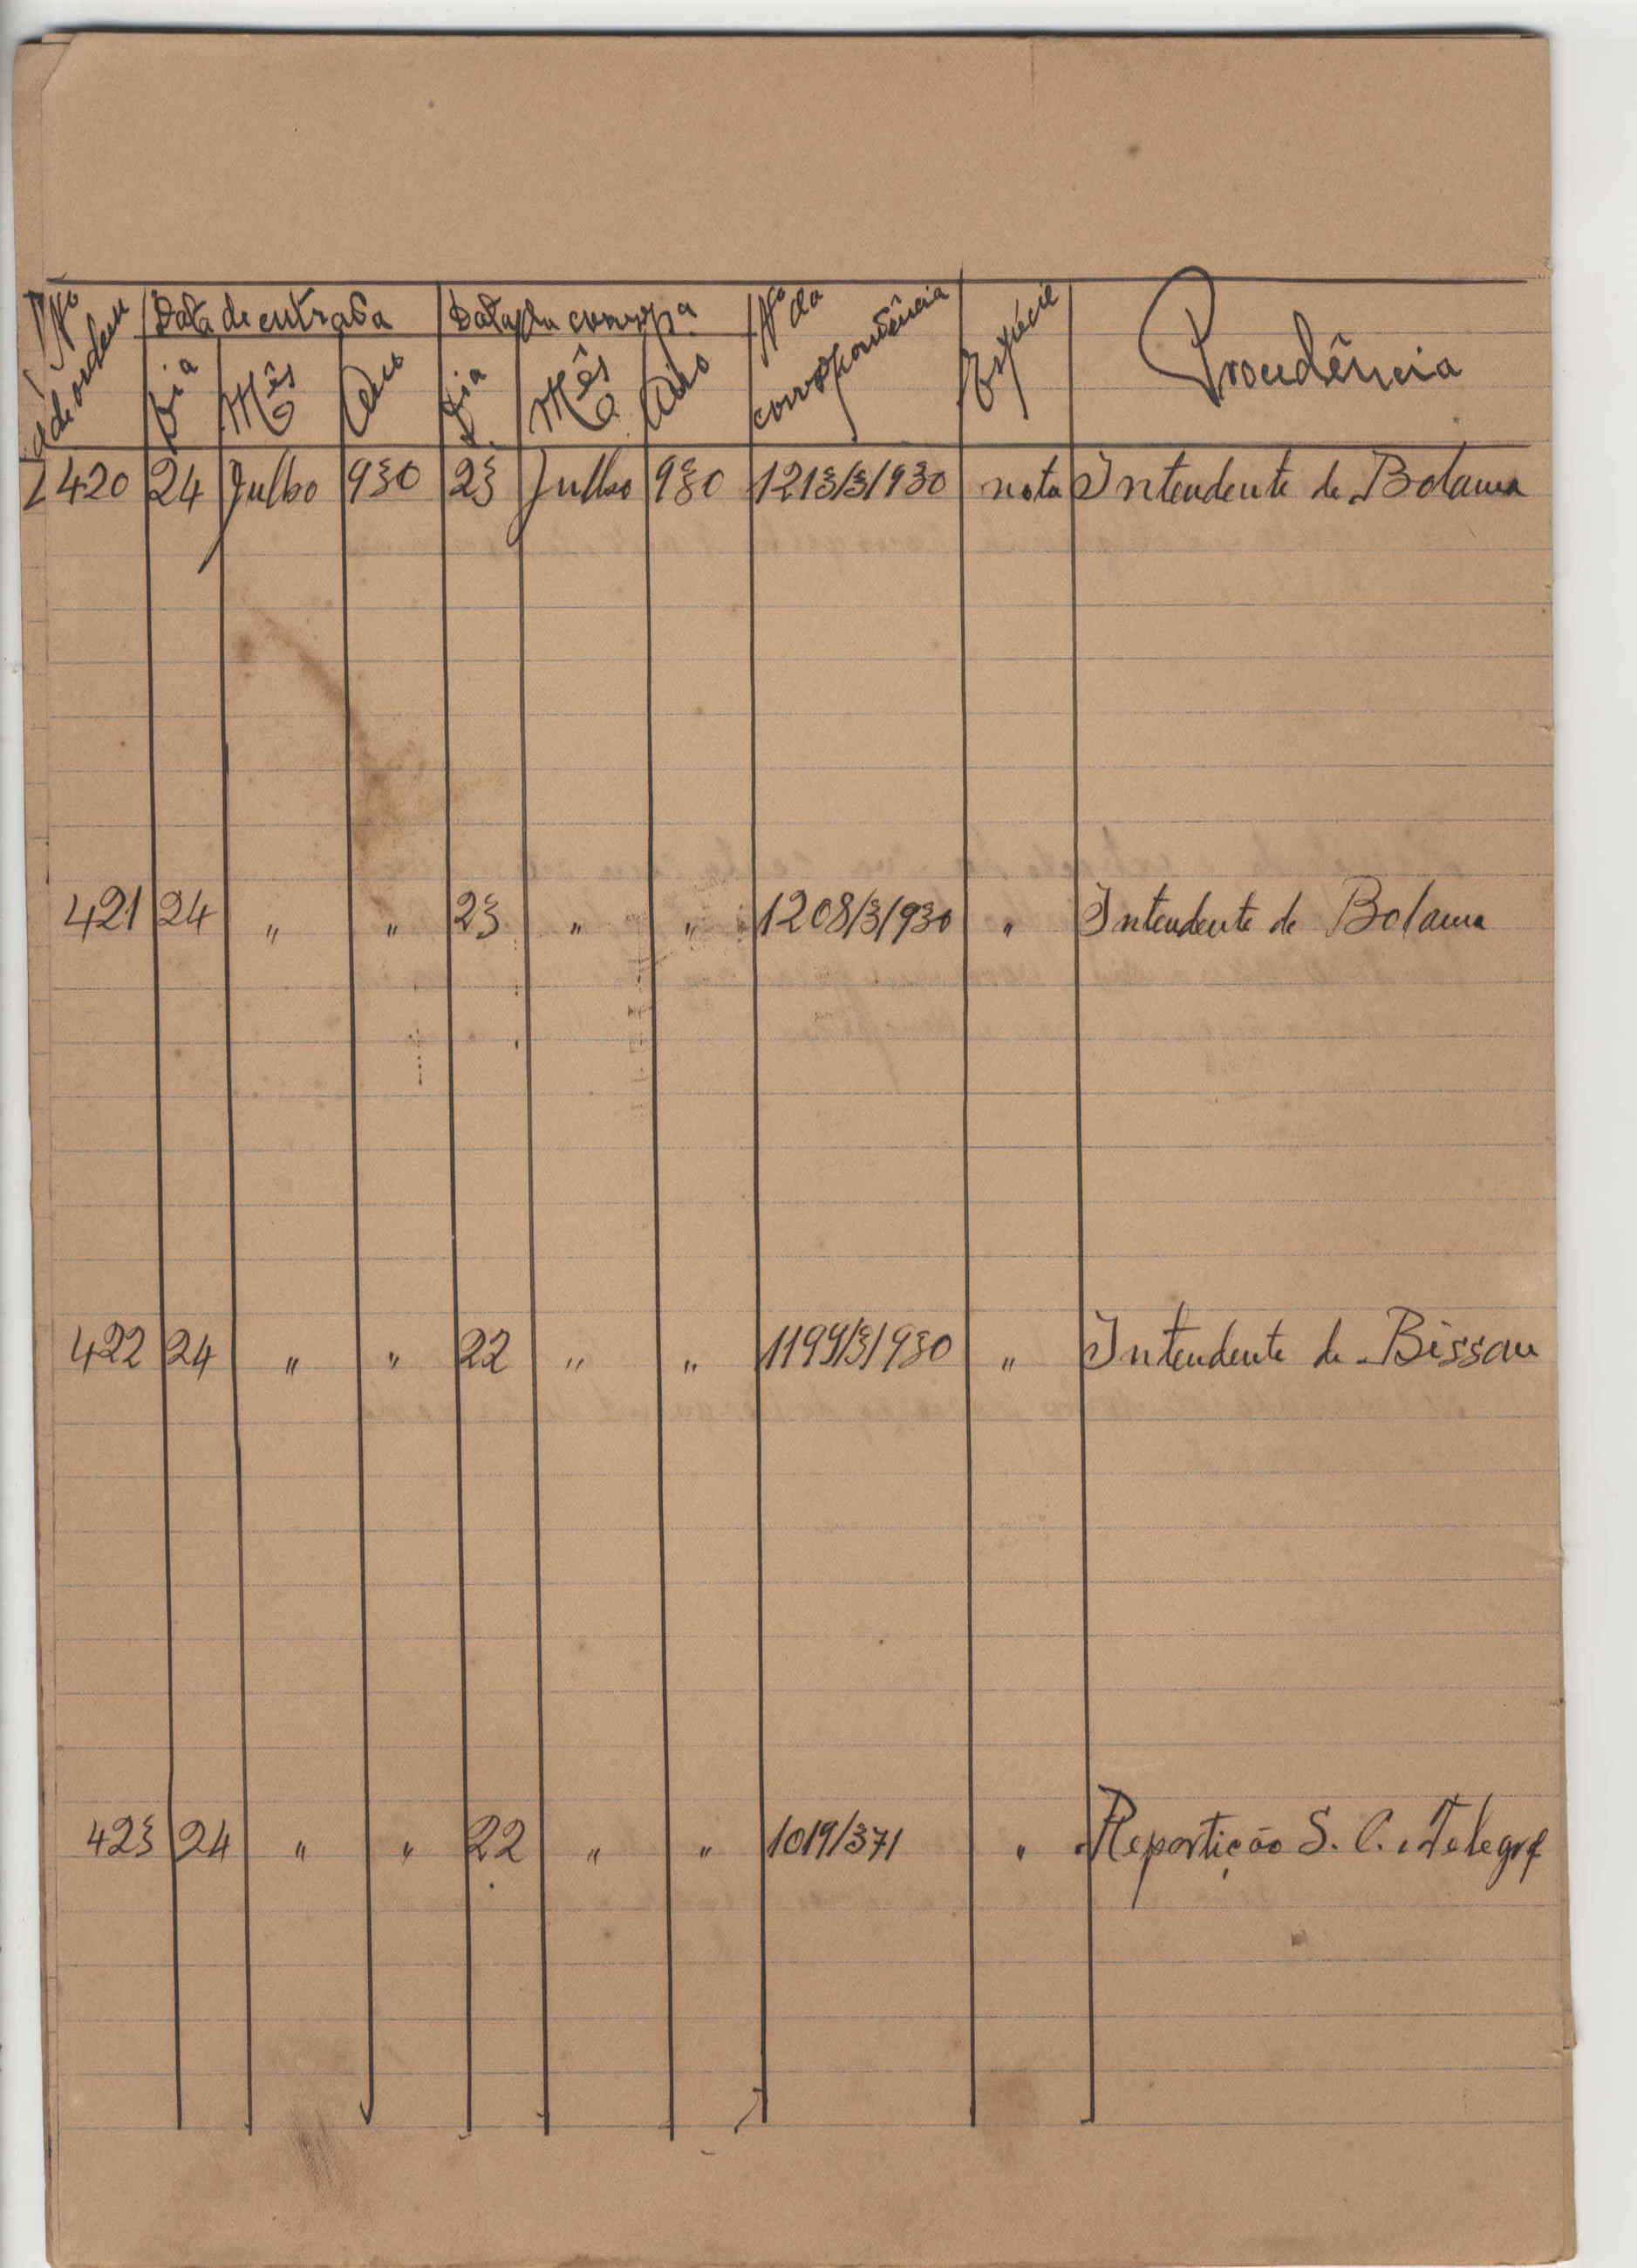 Nº de ordem | Data de entrada | Data da corresp.a | Nº da correspondência | Espécie | Procedência
Dia | Mês | Ano | Dia | Mês | Ano
420 | 24 | Julho | 930 | 23 | Julho | 930 | 1213/3/930 | nota | Intendente de Bolama
421 | 24 | " | " | 23 | " | " | 1208/3/930 | " | Intendente de Bolama
422 | 24 | " | " | 22 | " | " | 1199/3/930 | " | Intendente de Bissau
423 | 24 | " | " | 22 | " | " | 1019/371 | " | Repartição S. C. e Telegrf